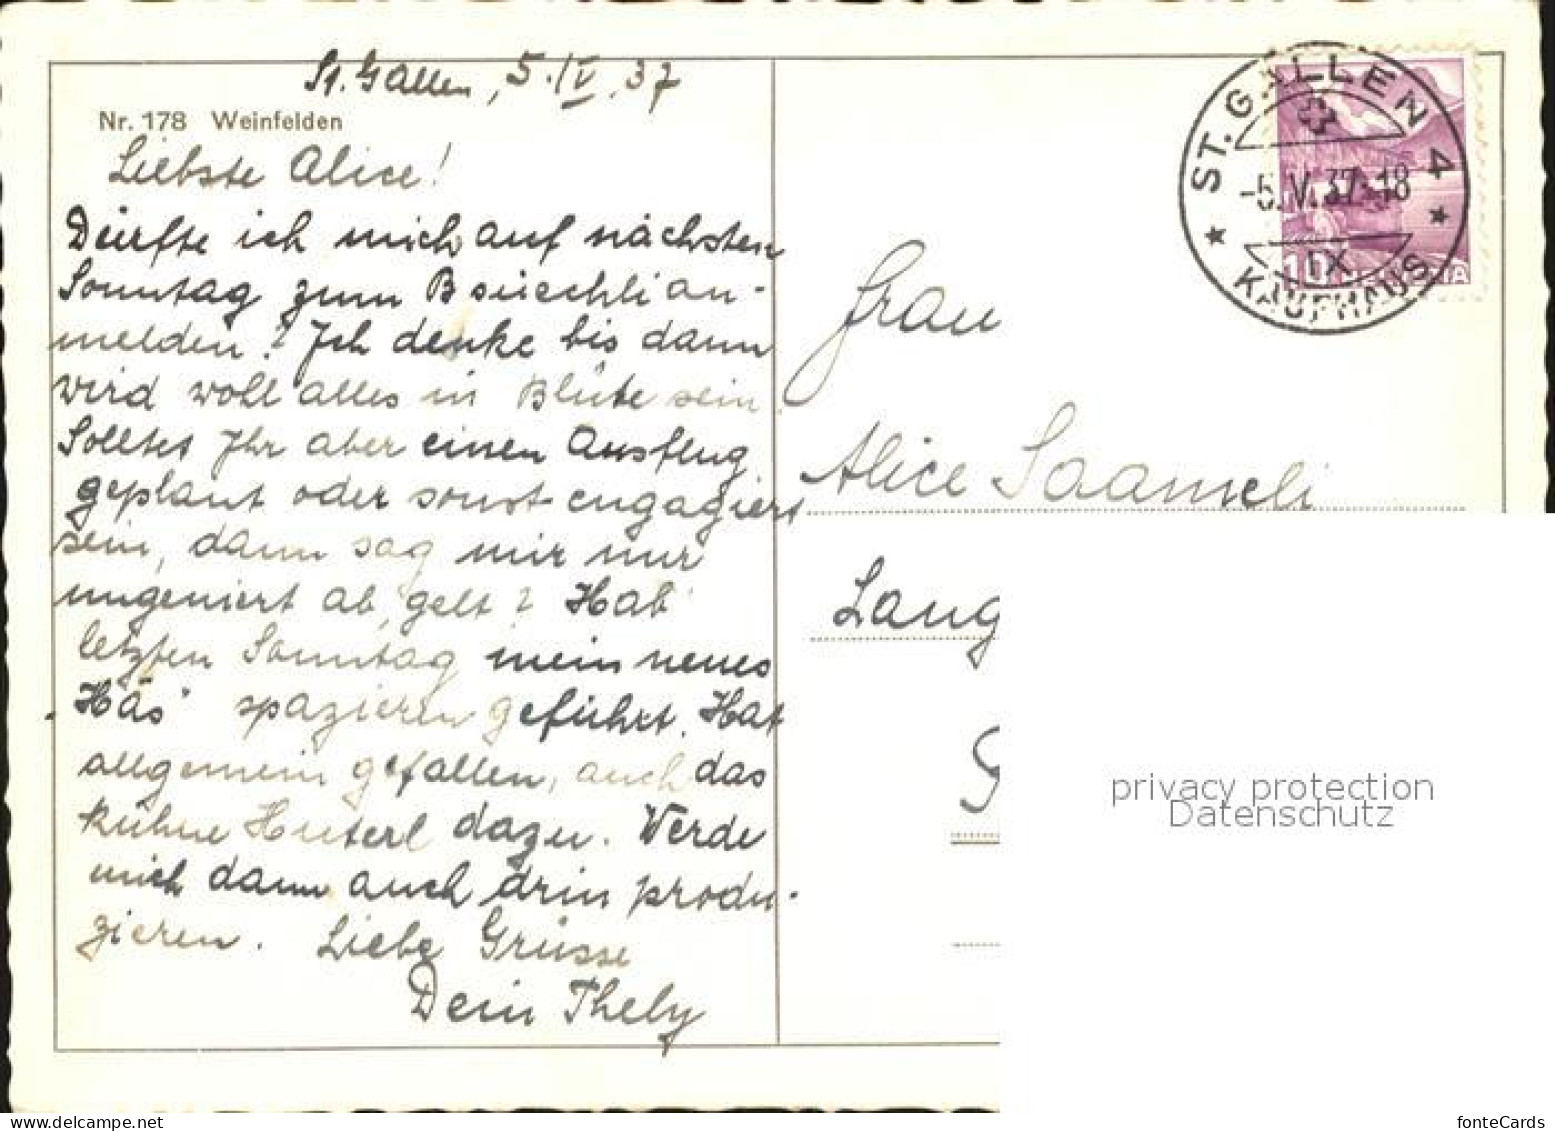 St. Gallen, 5. IV. 37
Nr. 178 Weinfelden
Liebste Alice!
Dürfte ich mich auf nächsten
Sonntag zum Bsüechli an-
melden? Ich denke bis dann
wird wohl alles in Blüte sein.
Solltet Ihr aber einen Ausflug
geplant oder sonst engagiert
sein, dann sag mir nur
ungeniert ab, gelt? Hab
letzten Sonntag mein neues
"Häs" spazieren geführt. Hat
allgemein gefallen, auch das
kühne Hüterl dazu. Werde
mich dann auch drin produ-
zieren. Liebe Grüsse
Dein Thely
ST. GALLEN 4
-5. V. 37-18
IX
KAUFHAUS
10 HELVETIA
Frau
Alice Saameli
Lang
G
privacy protection
Datenschutz
fonteCards